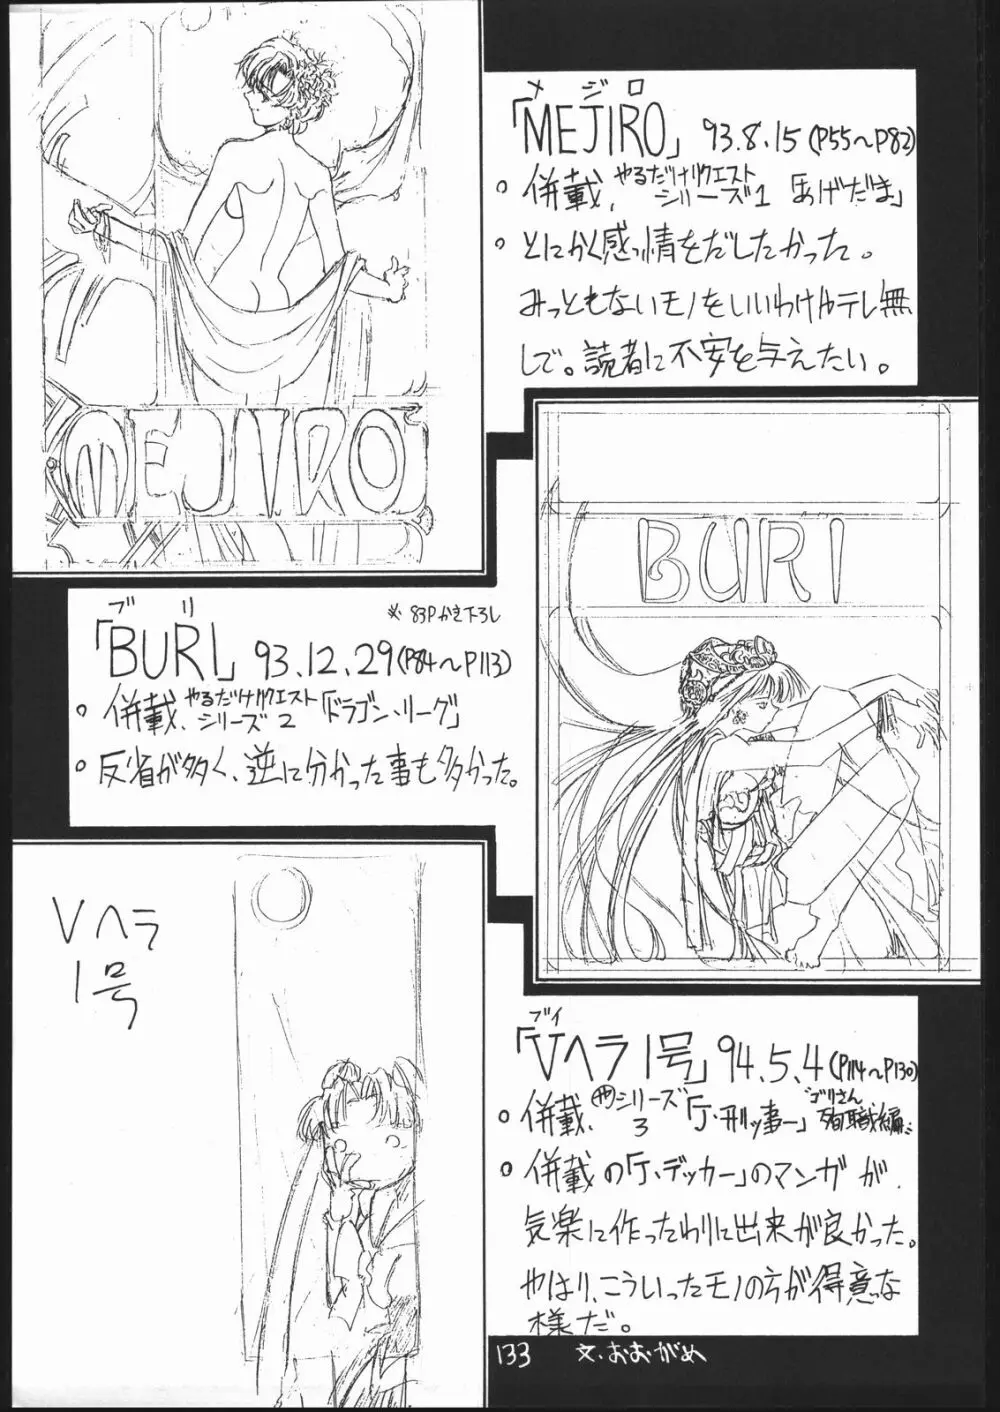 メジロ
「MEJIRO」 93.8.15 (P55〜P82)
○併載、やるだけリクエストシリーズ1「あげだま」
○とにかく感情をだしたかった。
みっともないモノをいいわけやテレ無
しで。読者に不安を与えたい。
MEJIRO
BURI
ブリ
※83Pかき下ろし
「BURI」 93.12.29 (P84〜P113)
○併載、やるだけリクエストシリーズ2「ドラゴン・リーグ」
○反省が多く、逆に分かった事も多かった。
Vヘラ
1号
ブイ
「Vヘラ1号」 94.5.4 (P114〜P130)
○併載、やシリーズ3「J・刑ッ事ー」ゴリさん殉職編
○併載の「J、デッカー」のマンガが、
気楽に作ったわりに出来が良かった。
やはり、こういったモノの方が得意な
様だ。
133 文、おおがめ